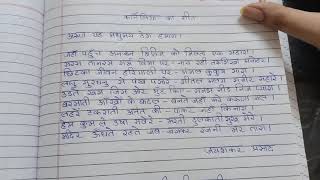 कार्नेलिया का गीत
अरुण यह मधुमय देश हमारा
जहाँ पहुँच अनजान क्षितिज को मिलता एक सहारा।
सरस तामरस गर्भ विभा पर - नाच रही तरुशिखा मनोहर।
छिटका जीवन हरियाली पर - मंगल कुंकुम सारा।
लघु सुरधनु से पंख पसारे - शीतल मलय समीर सहारे।
उड़ते खग जिस ओर मुँह किए - समझ नीड़ निज प्यारा।
बरसाती आँखों के बादल - बनते जहाँ भरे करुणा जल।
लहरें टकराती अनंत की - पाकर जहाँ किनारा।
हेम कुंभ ले उषा सवेरे - भरती ढुलकाती सुख मेरे।
मदिर ऊँघते रहते जब - जगकर रजनी भर तारा।
जयशंकर प्रसाद